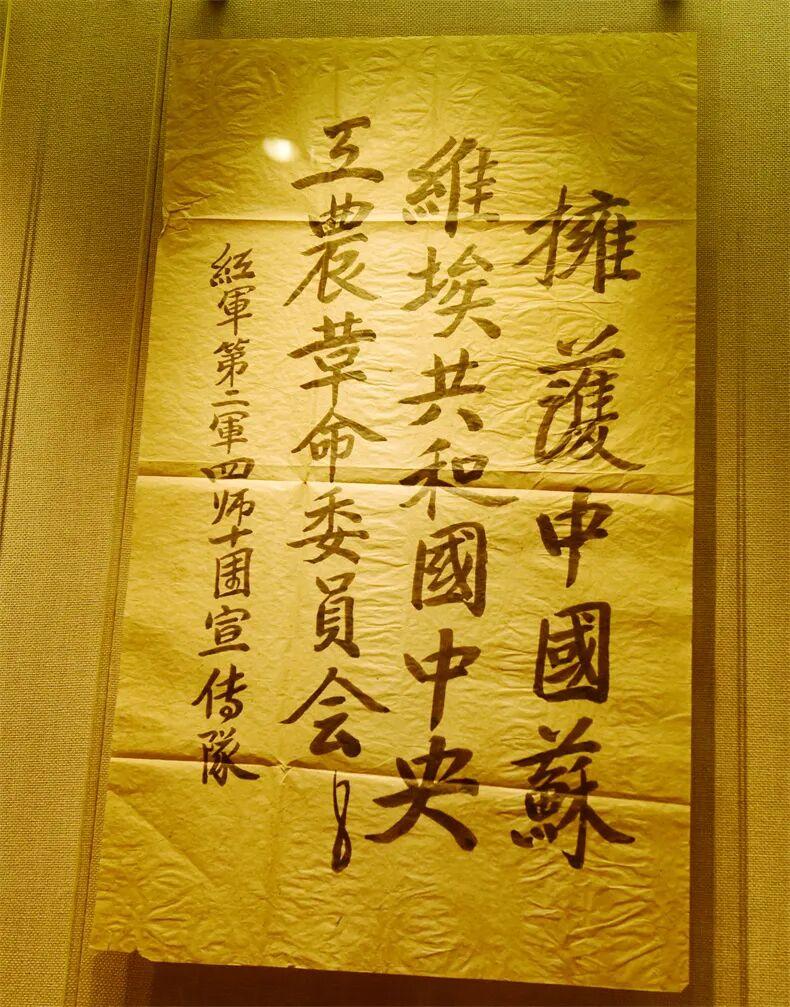 擁護中國蘇
維埃共和國中央
工農革命委員会!
紅軍第二軍四师十團宣传隊